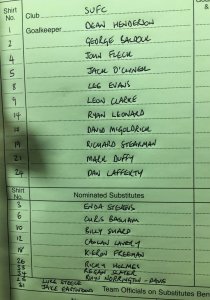 Shirt No.
Club SUFC
1 Goalkeeper DEAN HENDERSON
2 GEORGE BALDOCK
4 JOHN FLECK
5 JACK O'CONNELL
8 LEE EVANS
9 LEON CLARKE
14 RYAN LEONARD
DAVID MCGOLDRICK
19 RICHARD STEARMAN
21 MARK DUFFY
24 DAN LAFFERTY
Shirt No. Nominated Substitutes
3 ENDA STEVENS
6 CHRIS BASHAM
10 BILLY SHARP
12 CAOLAN LAVERY
18 KIERON FREEMAN
26 RICKY HOLMES
REGAN SLATER
RHYS NORRINGTON-DAVIES
LUKE
31 JAKE EASTWOOD
Team Officials on Substitutes Ben